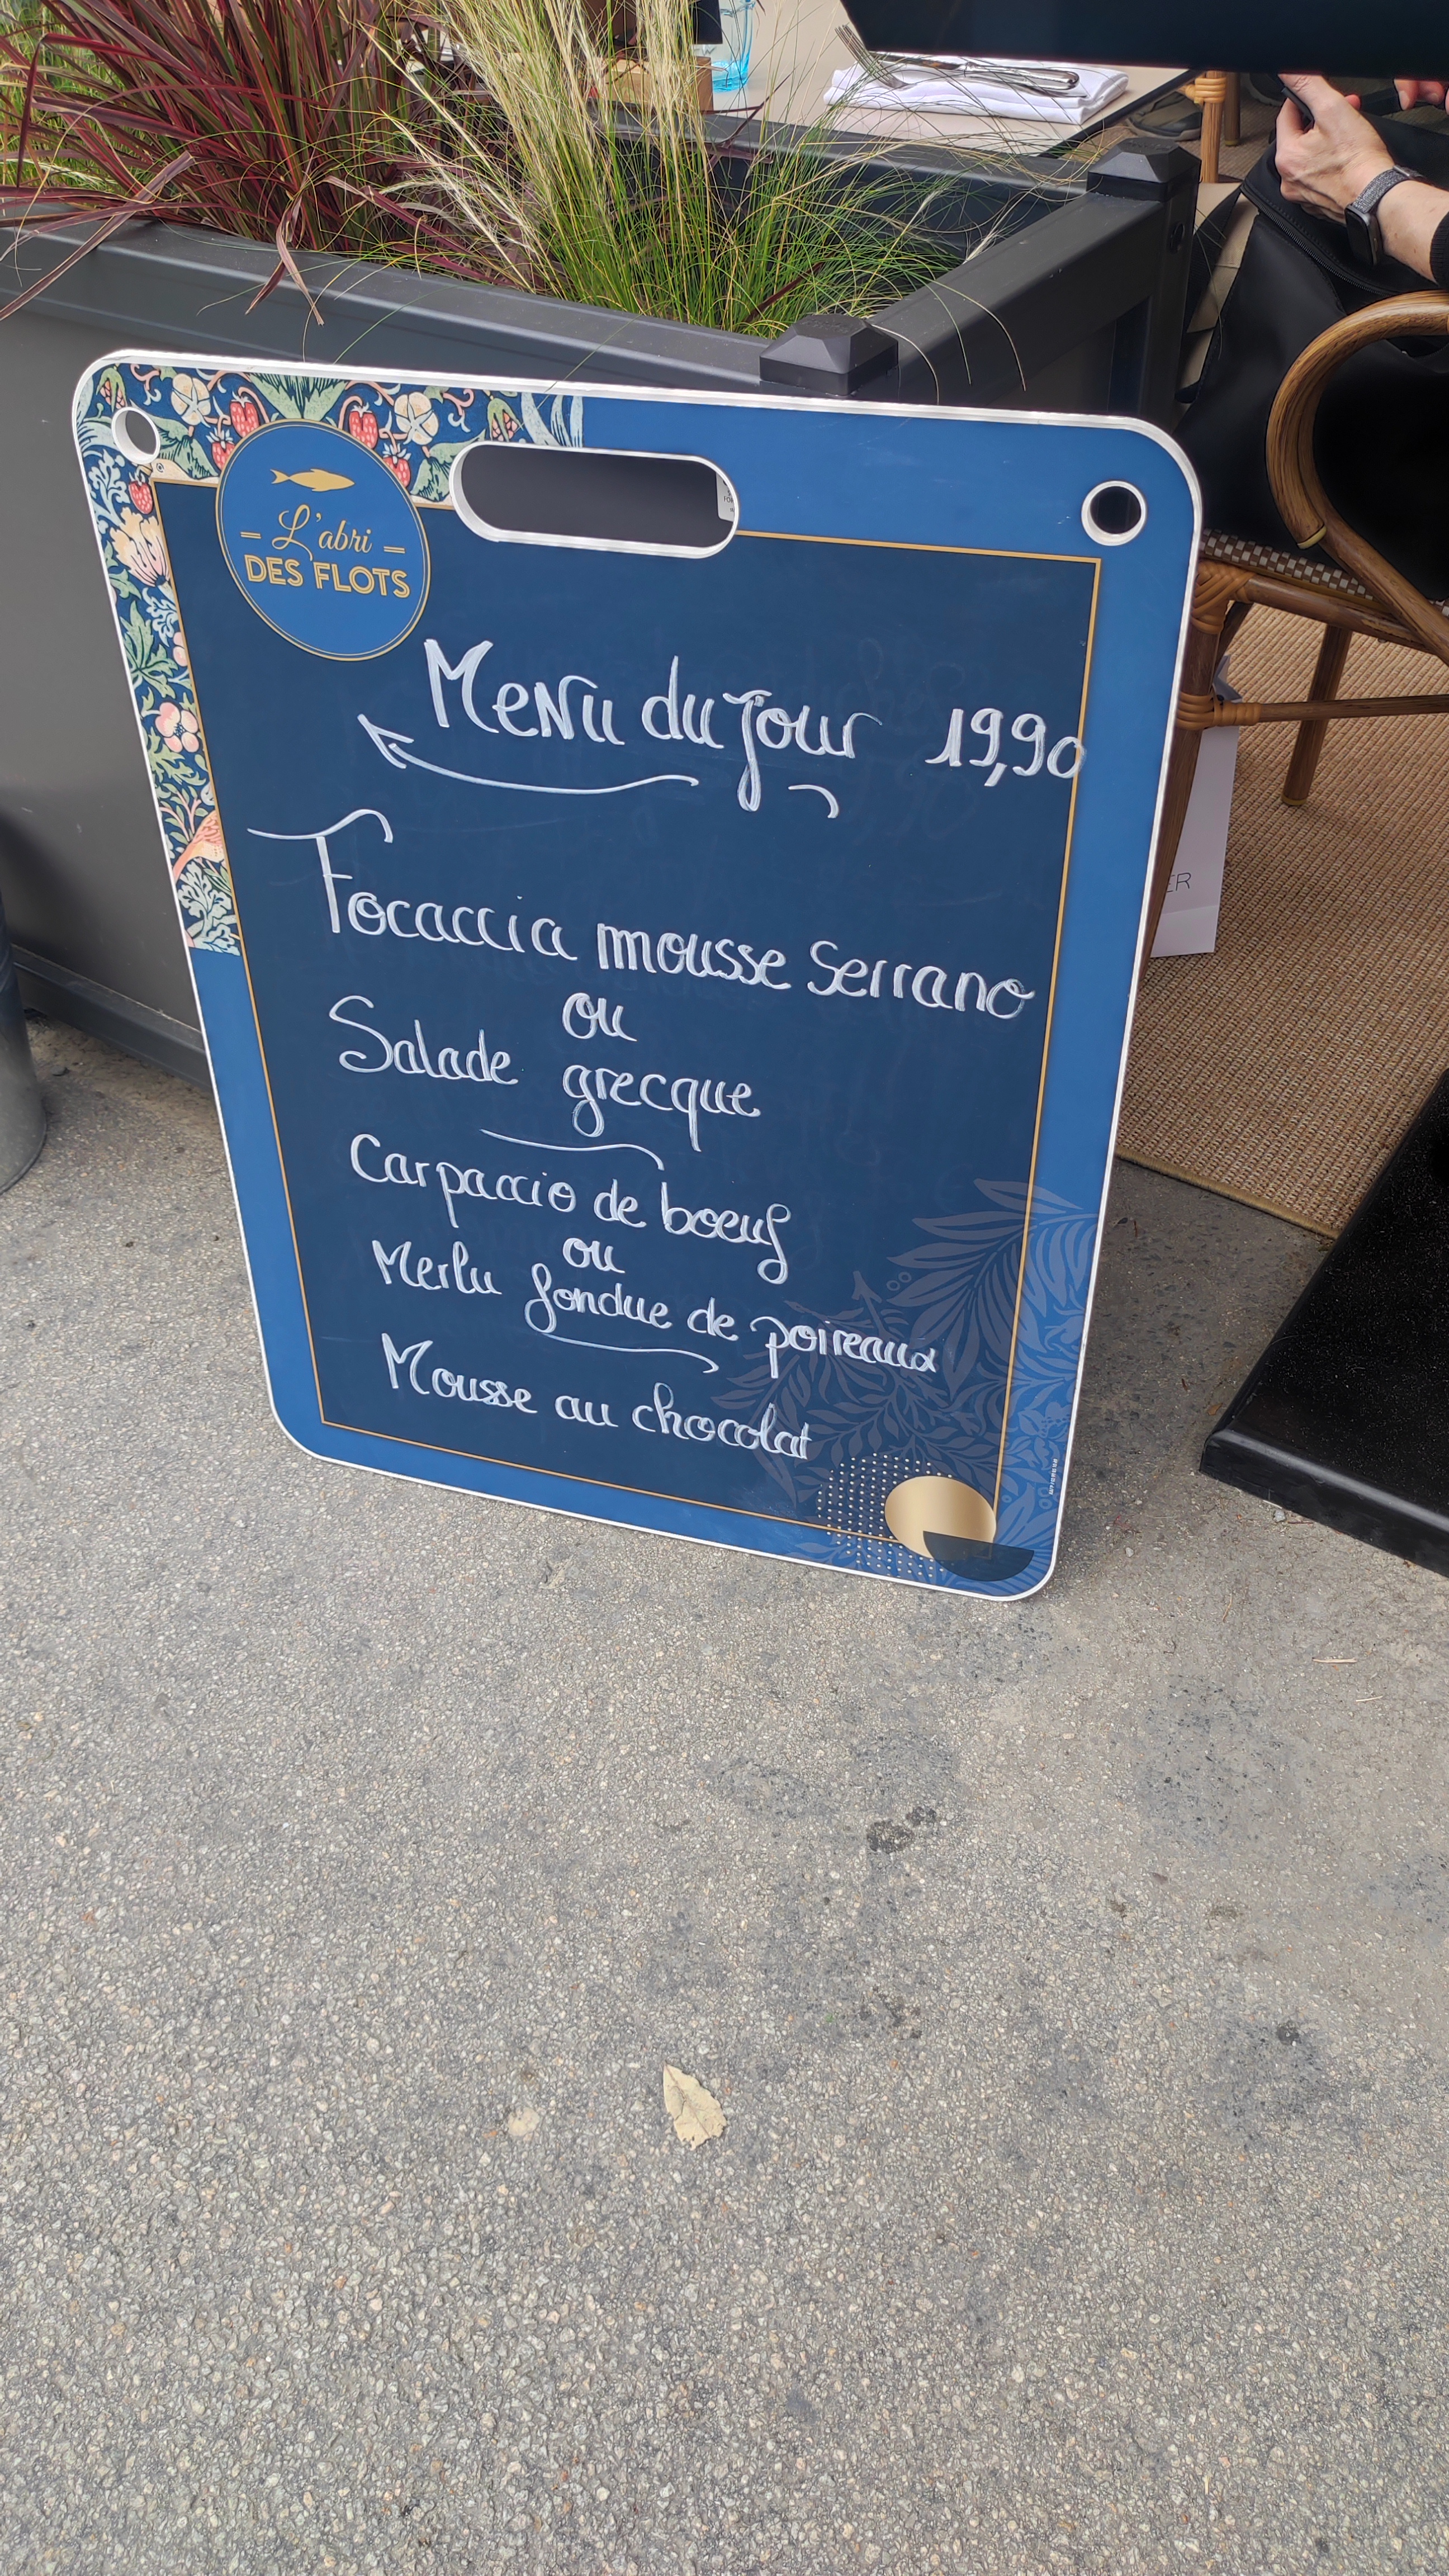 L'abri
DES FLOTS
Menu du jour 19,90
Focaccia mousse Serrano
ou
Salade grecque
Carpaccio de boeuf
ou
Merlu fondue de poireaux
Mousse au chocolat